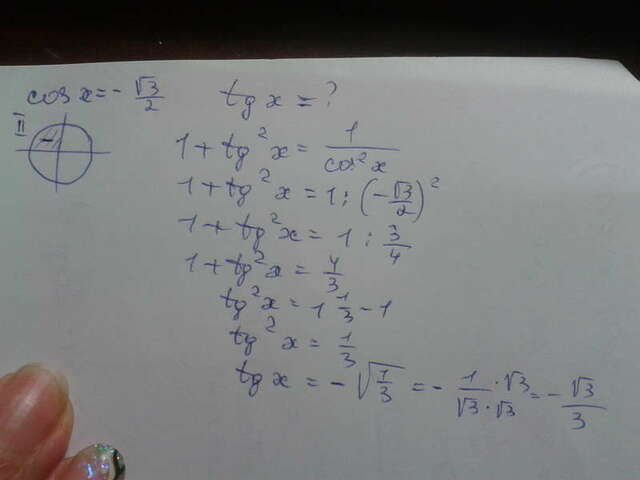 cos x = - √3/2 tg x = ?
II
-
1 + tg² x = 1/cos² x
1 + tg² x = 1 : (- √3/2)²
1 + tg² x = 1 : 3/4
1 + tg² x = 4/3
tg² x = 1 1/3 - 1
tg² x = 1/3
tg x = - √(1/3) = - (1 · √3)/(√3 · √3) = - √3/3